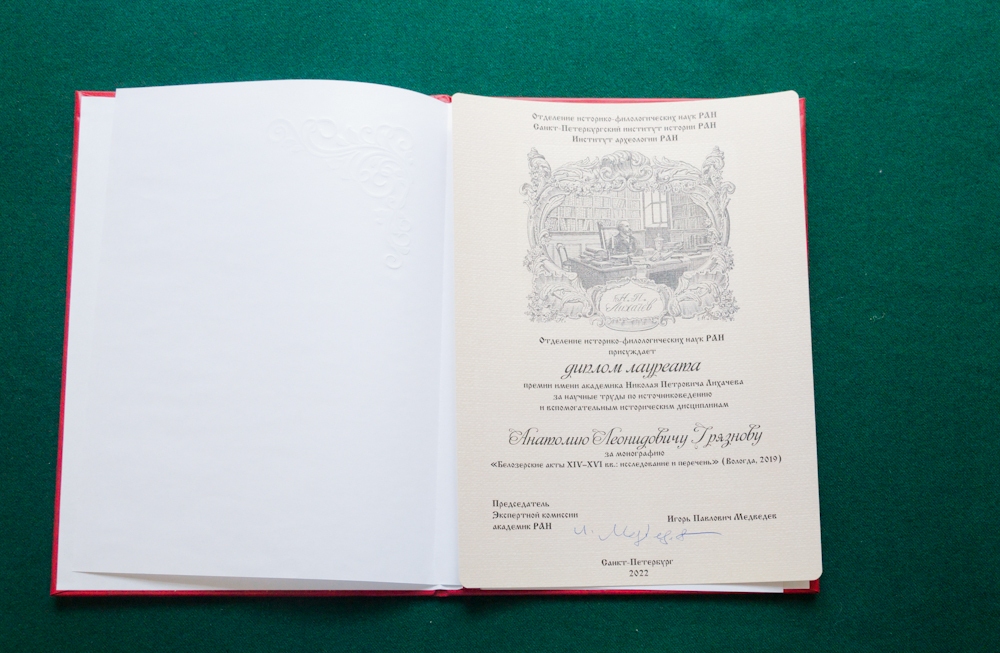 Отделение историко-филологических наук РАН
Санкт-Петербургский институт истории РАН
Институт археологии РАН
Н.П.
Лихачев
Отделение историко-филологических наук РАН
присуждает
диплом лауреата
премии имени академика Николая Петровича Лихачева
за научные труды по источниковедению
и вспомогательным историческим дисциплинам
Анатолию Леонидовичу Грязнову
за монографию
«Белозерские акты XIV–XVI вв.: исследование и перечень» (Вологда, 2019)
Председатель
Экспертной комиссии
академик РАН
Игорь Павлович Медведев
И. Медведев
Санкт-Петербург
2022